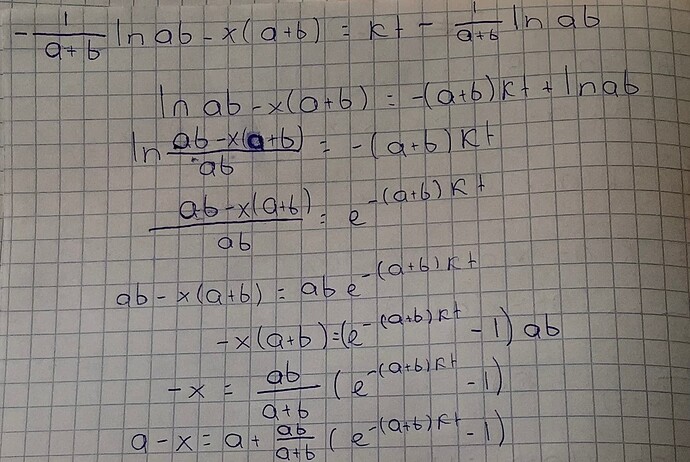 -1/(a+b) ln ab - x(a+b) = kt - 1/(a+b) ln ab
ln ab - x(a+b) = -(a+b)kt + ln ab
ln (ab - x(a+b))/ab = -(a+b)kt
(ab - x(a+b))/ab = e^(-(a+b)kt)
ab - x(a+b) = ab e^(-(a+b)kt)
-x(a+b) = (e^(-(a+b)kt) - 1) ab
-x = ab/(a+b) (e^(-(a+b)kt) - 1)
a - x = a + ab/(a+b) (e^(-(a+b)kt) - 1)